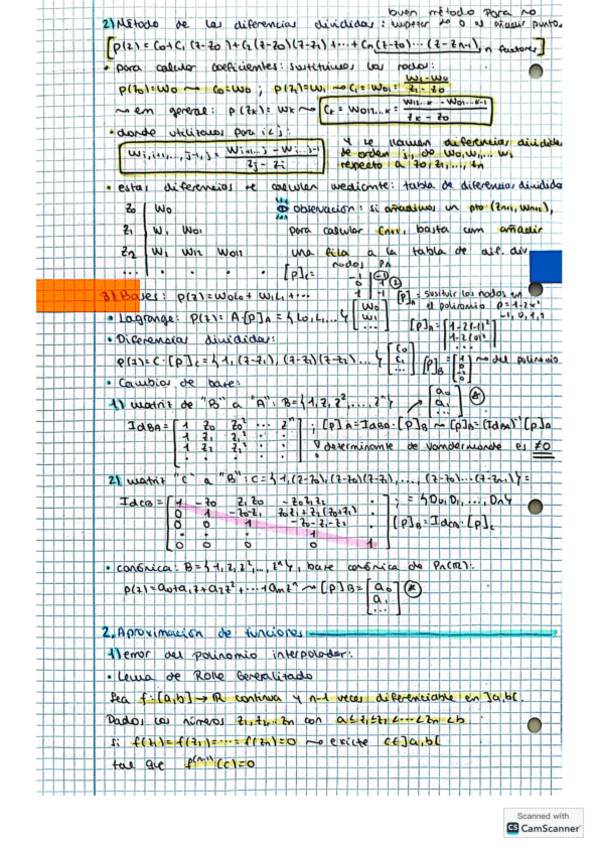 buen método para no
2) Método de las diferencias divididas: al añadir puntos
p(z) = C₀ + C₁(z-z₀) + C₂(z-z₀)(z-z₁) + ... + Cₙ(z-z₀)...(z-zₙ₋₁), n factores
• para calcular coeficientes: sustituimos los nodos:
p(z₀)=w₀ ⇝ C₀=w₀ ; p(z₁)=w₁ ⇝ C₁=w₀₁= (w₁-w₀)/(z₁-z₀)
⇝ en general: p(z_k)=w_k ⇝ C_k = w₀₁₂...k = (w₁₂...k - w₀₁...k-1)/(z_k - z₀)
• donde utilizamos para i<j:
y se llaman diferencias divididas
w_{i,i+1,...,j-1,j} = (w_{i+1...j} - w_{i...j-1})/(z_j - z_i)
de orden j, de w₀, w₁, ... w_i
respecto a z₀, z₁, ..., z_n
• estas diferencias se calculan mediante: tabla de diferencias divididas
z₀ | w₀
observación: si añadimos un pto (zₙ₊₁, wₙ₊₁),
z₁ | w₁ w₀₁
para calcular Cₙ₊₁, basta con añadir
z₂ | w₂ w₁₂ w₀₁₂
una fila a la tabla de dif. div
... • • •
nodos
[p]c =
3) Bases: p(z)=w₀L₀+w₁L₁+...
[p]A: sustituir los nodos en
el polinomio p=1-2x²
-1, 0, 1, 2
• Lagrange: p(z)= A·[p]A = {L₀, L₁, ...} [w₀ w₁ ...]
[p]A = [1-2(-1)² 1-2(0)² ...]
• Diferencias divididas:
p(z)=C·[p]c = {1, (z-z₁), (z-z₁)(z-z₂) ...} [C₀ C₁ ...]
[p]B = ⇝ del polinomio
• Cambios de base:
1) matriz de "B" a "A": B={1, z, z², ..., zⁿ}
[a₀ a₁ ...] ⊛
IdBA = [1 z₀ z₀² ... zⁿ
1 z₁ z₁² •
1 z₂ z₂² •
• • • •]
; [p]A = IdBA·[p]B ⇝ [p]B = (IdBA)⁻¹[p]A
determinante de Vandermonde es ≠0
2) matriz "C" a "B": C={1, (z-z₀), (z-z₀)(z-z₁), ..., (z-z₀)...(z-zₙ₋₁)} =
IdCB = [1 -z₀ z₁z₀ -z₀z₁z₂ •
0 1 -z₀-z₁ z₀z₁+z₂(z₀+z₁) •
0 0 1 -z₀-z₁-z₂ •
• • • 1 •
0 0 0 0 1]
; = {D₀, D₁, ..., Dₙ}
[p]B = IdCB·[p]c
• canónica: B={1, z, z², ..., zⁿ}, base canónica de Pₙ(ℝ):
p(z)=a₀+a₁z+a₂z²+...+aₙzⁿ ⇝ [p]B = [a₀ a₁ ...] ⊛
2. Aproximación de funciones
1) error del polinomio interpolador:
• Lema de Rolle Generalizado
Sea f:[a,b]→ℝ continua y n-1 veces diferenciable en ]a,b[.
Dados los números z₁, z₂, ... zₙ con a≤z₁≤z₂<...<zₙ<b
si f(z₁)=f(z₂)=...=f(zₙ)=0 ⇝ existe c∈]a,b[
tal que f⁽ⁿ⁻¹⁾(c)=0
Scanned with
CS CamScanner